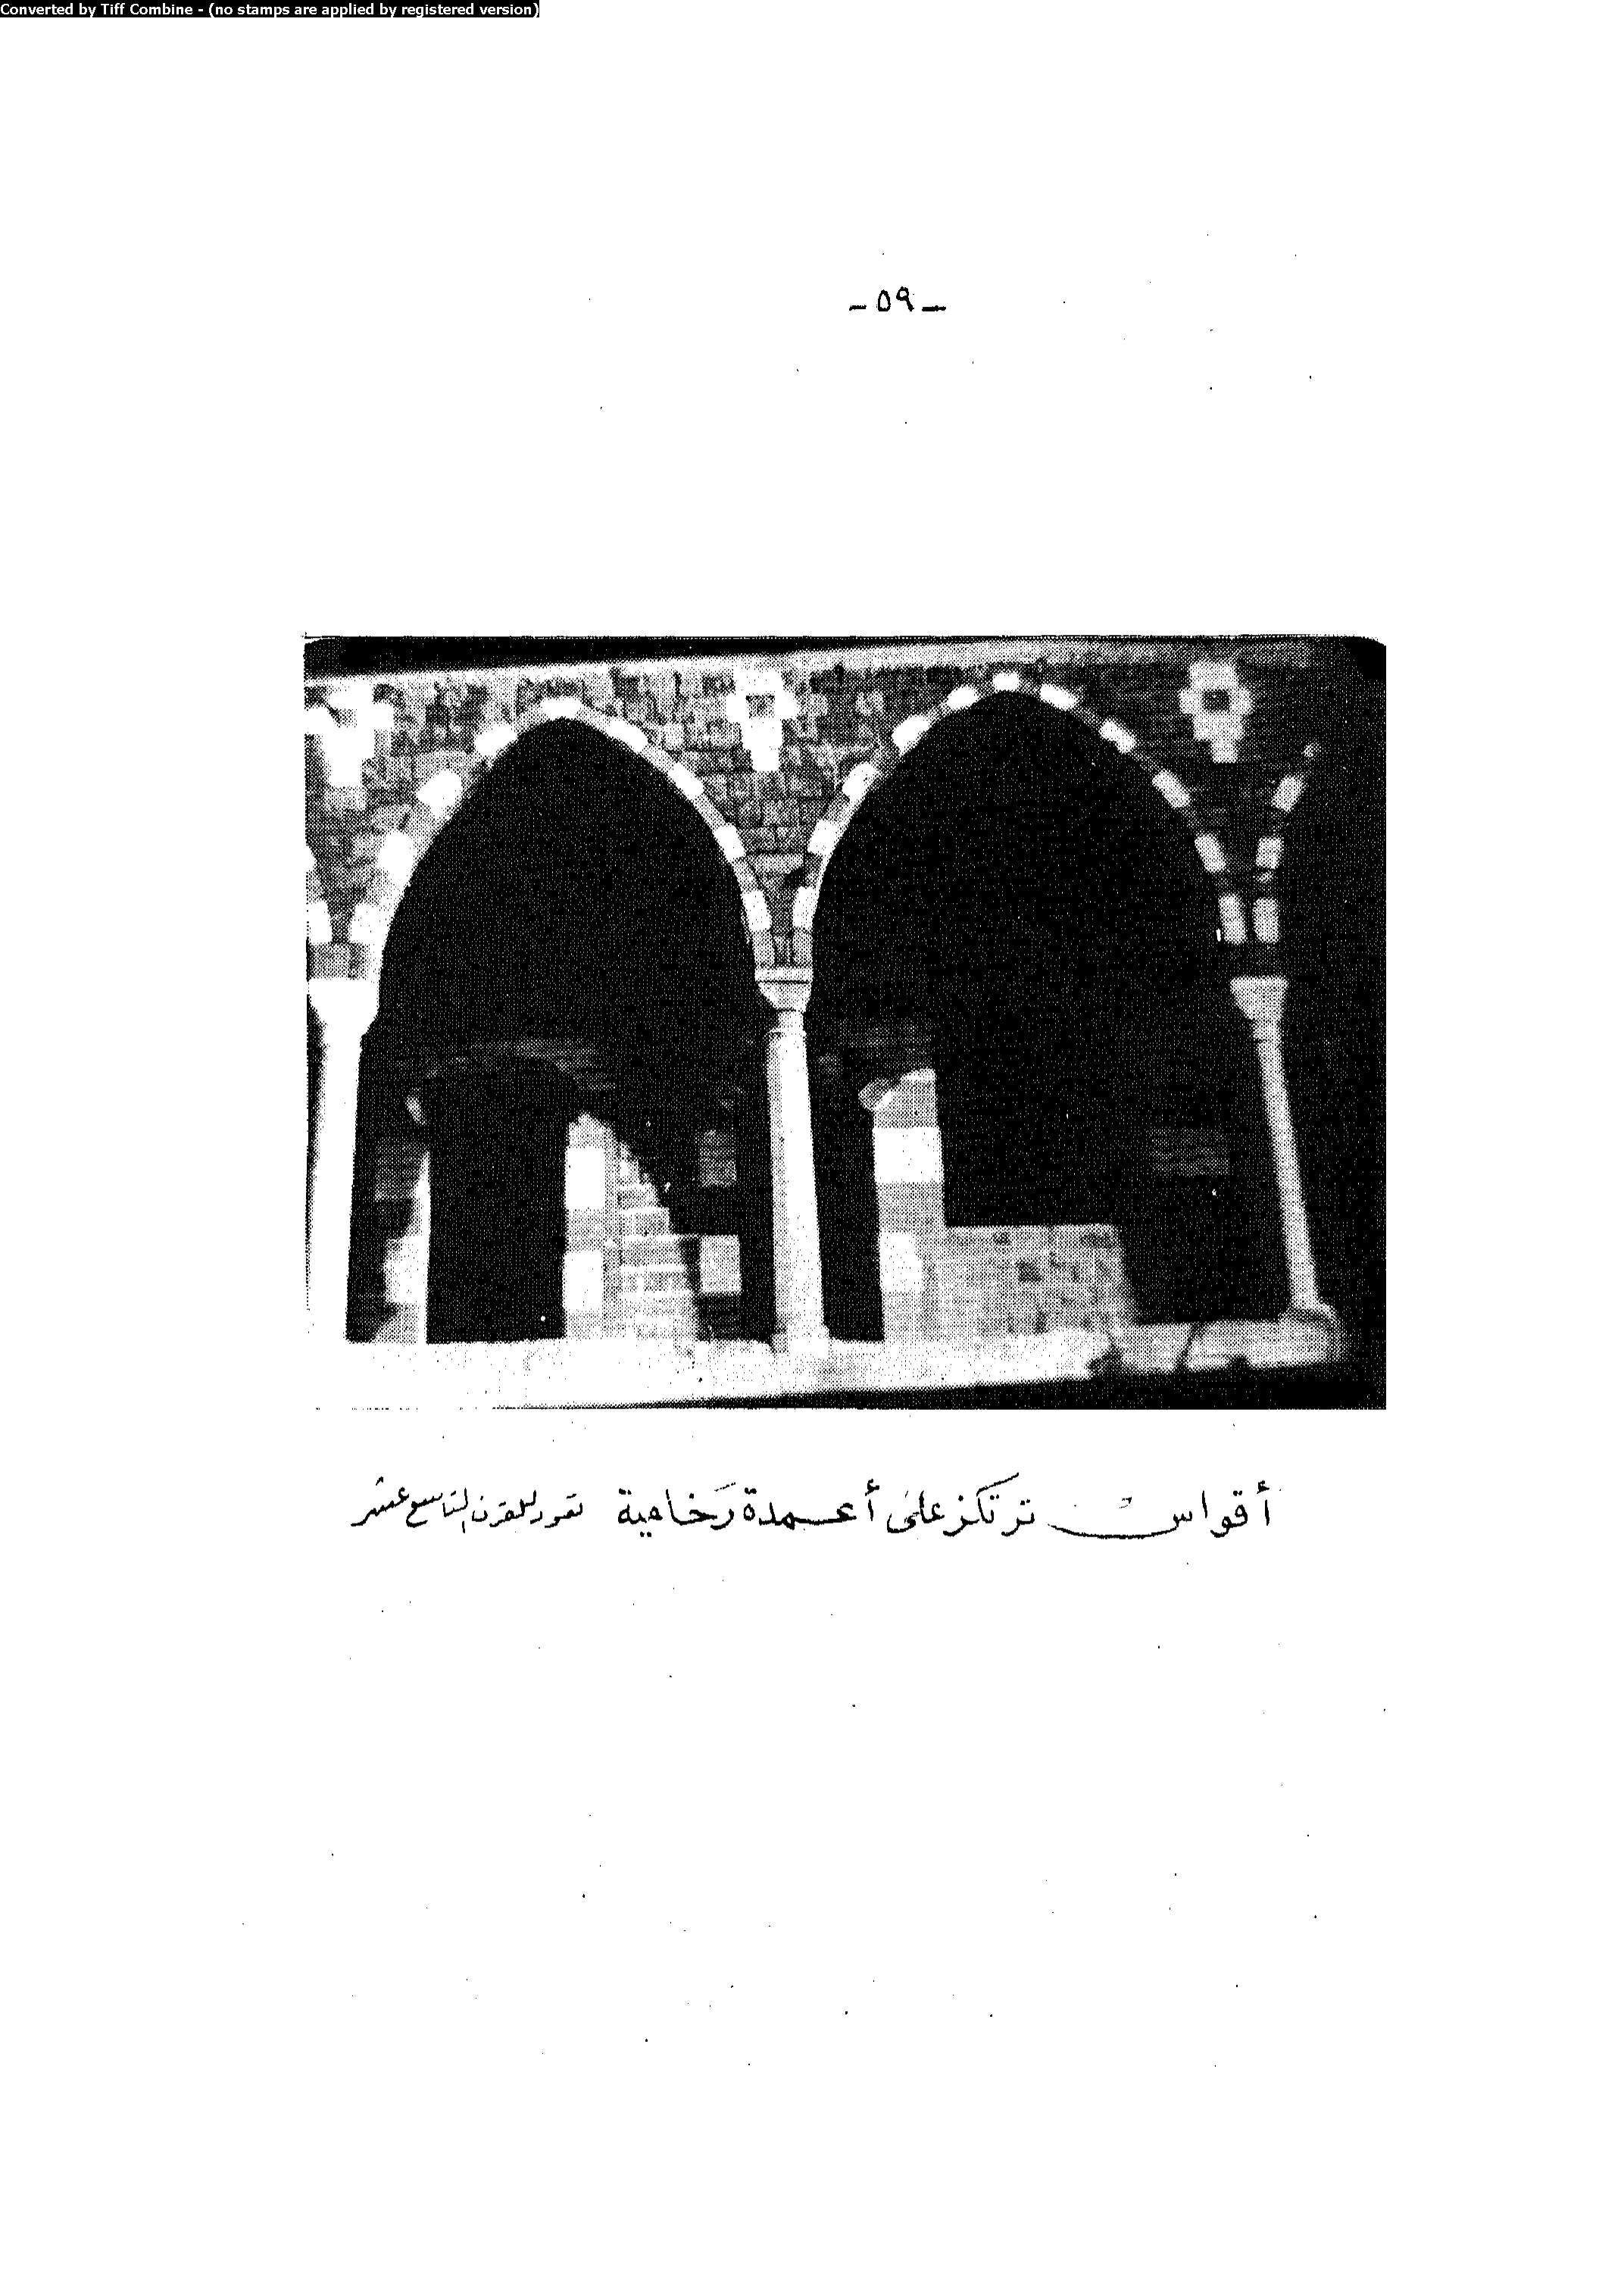 Converted by Tiff Combine - (no stamps are applied by registered version)
-٥٩-
أقواس ترتكز على أعمدة رخامية تعود للقرن التاسع عشر